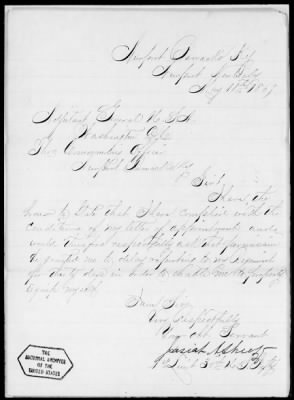 Newport Barracks Ky
Newport Kentucky
May 11th 1867
Adjutant General U.S.A.
Washington
Thro Commanding Officer
Newport Barracks Ky
Sir,
I have the
honor to state that I have complied with the
conditions of my letter of appointment and
would respectfully ask that permission
be granted me to delay reporting to my Regiment
for days in order to enable me to properly
equip myself.
I am Sir,
Very respectfully
Your obt Servant
Josiah
Lieut
THE
NATIONAL ARCHIVES
OF THE
UNITED STATES